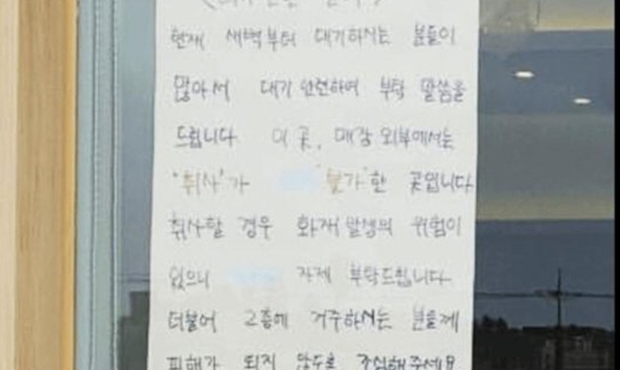 현재 새벽부터 대기하시는 분들이
많아서 대기 관련하여 부탁 말씀을
드립니다. 이 곳, 매장 외부에서는
"취사"가 "불가"한 곳입니다
취사할 경우 화재 발생의 위험이
있으니 자제 부탁드립니다.
더불어 2층에 거주하시는 분들께
피해가 되지 않도록 조심해주세요